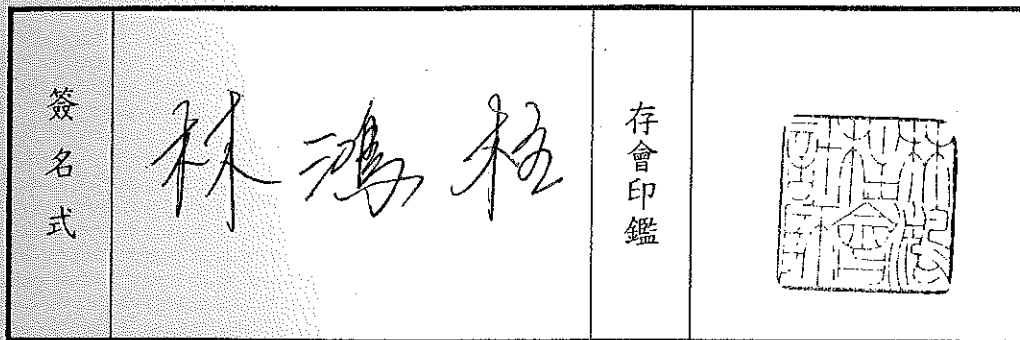 簽名式
林鴻柱
存會印鑑